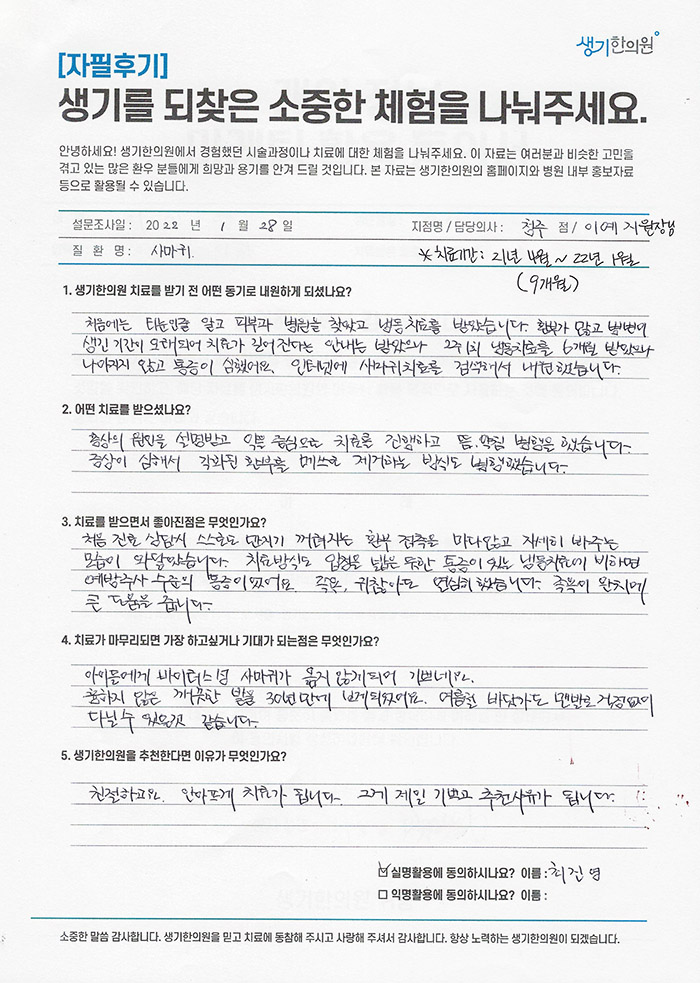 생기한의원
[자필후기]
생기를 되찾은 소중한 체험을 나눠주세요.
안녕하세요! 생기한의원에서 경험했던 시술과정이나 치료에 대한 체험을 나눠주세요. 이 자료는 여러분과 비슷한 고민을
겪고 있는 많은 환우 분들에게 희망과 용기를 안겨 드릴 것입니다. 본 자료는 생기한의원의 홈페이지와 병원 내부 홍보자료
등으로 활용될 수 있습니다.
설문조사일 : 2022 년 1 월 28 일 지점명 / 담당의사 : 청주 점 / 이예지원장님
질 환 명 : 사마귀. ※치료기간: 21년 4월 ~ 22년 1월
(9개월)
1. 생기한의원 치료를 받기 전 어떤 동기로 내원하게 되셨나요?
처음에는 티눈인줄 알고 피부과 병원을 찾았고 냉동치료를 받았습니다. 환부가 많고
생긴 기간이 오래되어 치료가 길어진다는 안내는 받았으나 2주1회 냉동치료를 6개월 받았으나
나아지지 않고 통증이 심했어요. 인터넷에 사마귀치료를 검색해서 내원했습니다.
2. 어떤 치료를 받으셨나요?
증상의 원인을 설명받고 약뜸 중심으로 치료를 진행하고 뜸.약침 병행을 했습니다.
증상이 심해서 각화된 환부를 메스로 제거하는 방식도 병행했습니다.
3. 치료를 받으면서 좋아진점은 무엇인가요?
처음 진료 상담시 스스로도 만지기 꺼려지는 환부 접촉을 마다않고 자세히 봐주는
모습이 와닿았습니다. 치료방식도 입힌 듯한 통증이 있는 냉동치료에 비하면
예방주사 수준의 통증이었어요. 족욕, 귀찮아도 열심히 했습니다. 족욕이 완치에
큰 도움을 줍니다.
4. 치료가 마무리되면 가장 하고싶거나 기대가 되는점은 무엇인가요?
아이들에게 바이러스성 사마귀가 옮지 않게되어 기쁘네요.
흉하지 않은 깨끗한 발을 30년만에 보게되었어요. 여름철 바닷가도 맨발로 걱정없이
다닐수 있을것 같습니다.
5. 생기한의원을 추천한다면 이유가 무엇인가요?
친절하고요. 안아프게 치료가 됩니다. 그게 제일 기쁘고 추천사유가 됩니다.
☑ 실명활용에 동의하시나요? 이름 : 최진영
□ 익명활용에 동의하시나요? 이름 :
소중한 말씀 감사합니다. 생기한의원을 믿고 치료에 동참해 주시고 사랑해 주셔서 감사합니다. 항상 노력하는 생기한의원이 되겠습니다.